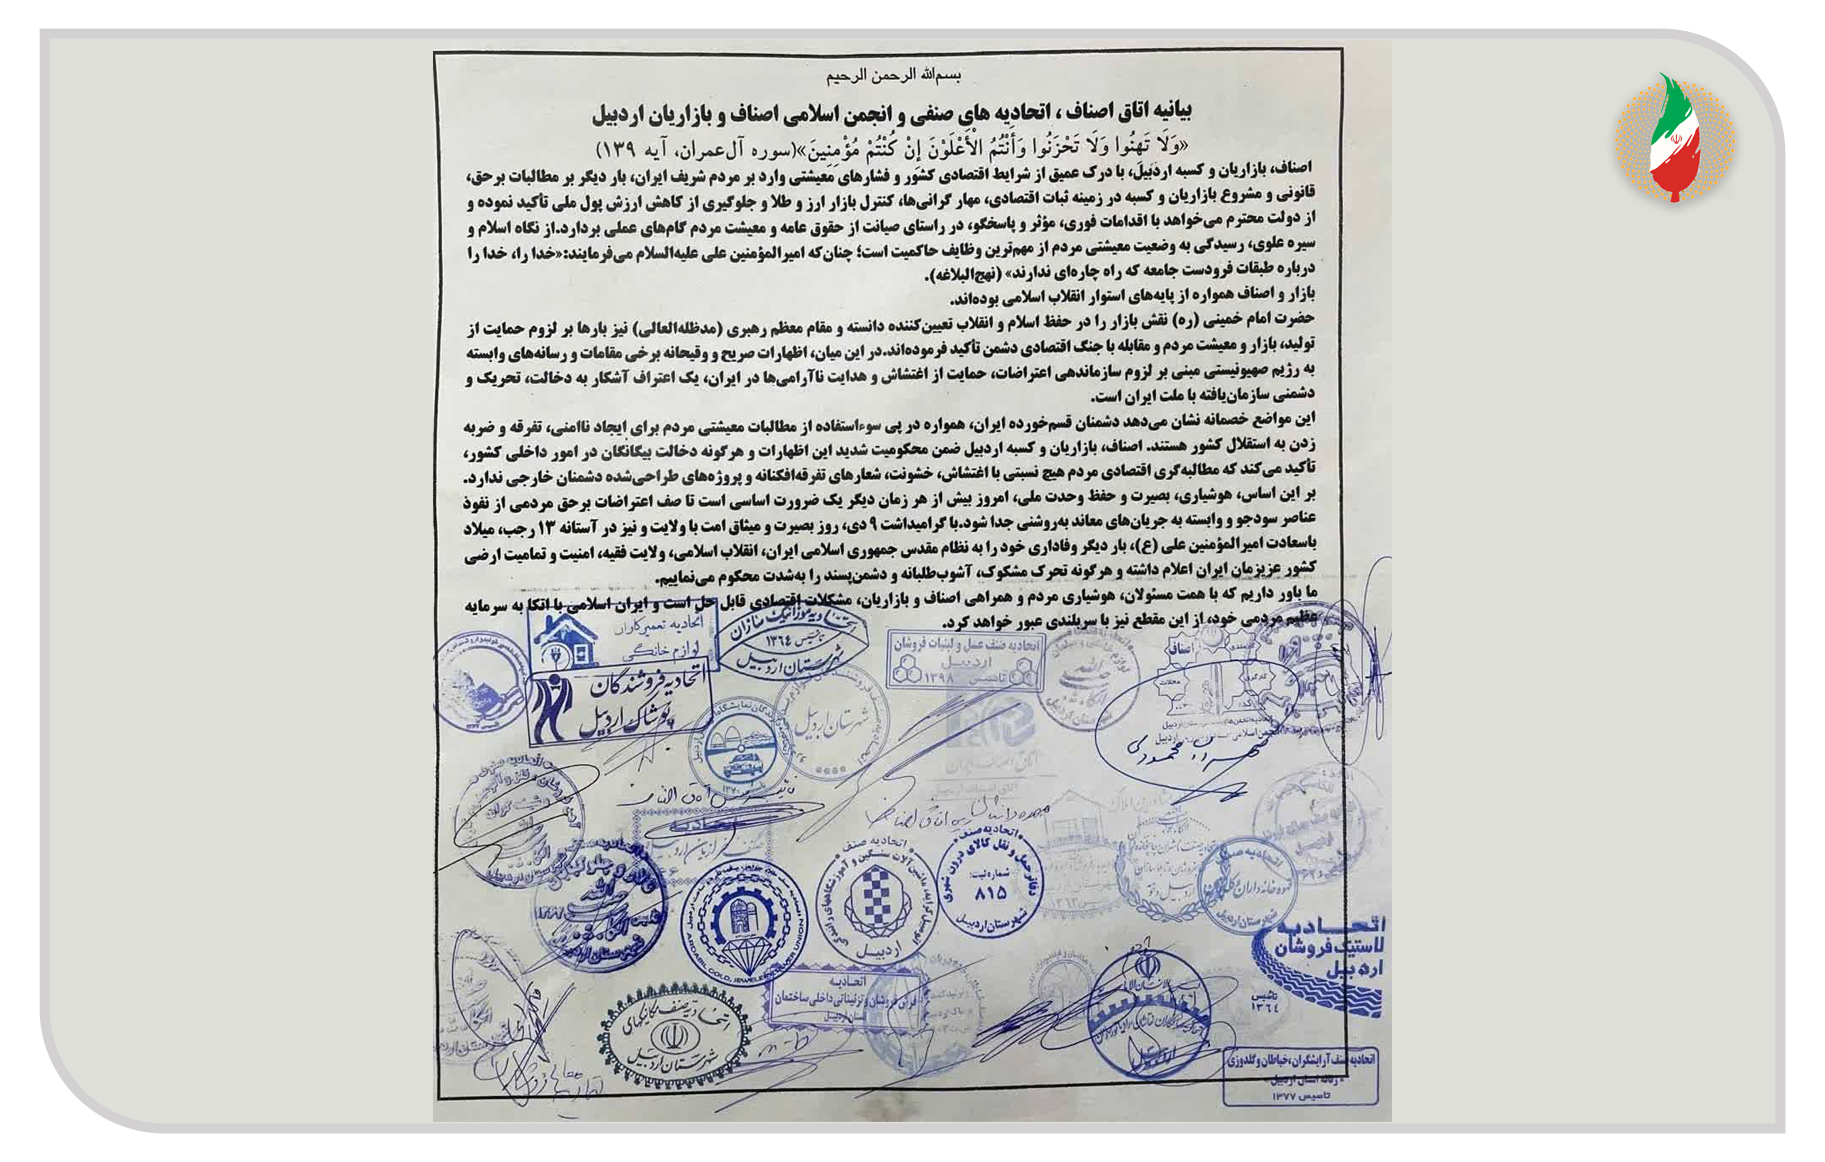 بسم‌الله الرحمن الرحیم
بیانیه اتاق اصناف ، اتحادیه های صنفی و انجمن اسلامی اصناف و بازاریان اردبیل
«وَلَا تَهِنُوا وَلَا تَحْزَنُوا وَأَنْتُمُ الْأَعْلَوْنَ إِنْ كُنْتُمْ مُؤْمِنِينَ»(سوره آل‌عمران، آیه ۱۳۹)
اصناف، بازاریان و کسبه اردبیل، با درک عمیق از شرایط اقتصادی کشور و فشارهای معیشتی وارد بر مردم شریف ایران، بار دیگر بر مطالبات برحق،
قانونی و مشروع بازاریان و کسبه در زمینه ثبات اقتصادی، مهار گرانی‌ها، کنترل بازار ارز و طلا و جلوگیری از کاهش ارزش پول ملی تأکید نموده و
از دولت محترم می‌خواهد با اقدامات فوری، مؤثر و پاسخگو، در راستای صیانت از حقوق عامه و معیشت مردم گام‌های عملی بردارد.از نگاه اسلام و
سیره علوی، رسیدگی به وضعیت معیشتی مردم از مهم‌ترین وظایف حاکمیت است؛ چنان‌که امیرالمؤمنین علی علیه‌السلام می‌فرمایند:«خدا را، خدا را
درباره طبقات فرودست جامعه که راه چاره‌ای ندارند» (نهج‌البلاغه).
بازار و اصناف همواره از پایه‌های استوار انقلاب اسلامی بوده‌اند.
حضرت امام خمینی (ره) نقش بازار را در حفظ اسلام و انقلاب تعیین‌کننده دانسته و مقام معظم رهبری (مدظله‌العالی) نیز بارها بر لزوم حمایت از
تولید، بازار و معیشت مردم و مقابله با جنگ اقتصادی دشمن تأکید فرموده‌اند.در این میان، اظهارات صریح و وقیحانه برخی مقامات و رسانه‌های وابسته
به رژیم صهیونیستی مبنی بر لزوم سازماندهی اعتراضات، حمایت از اغتشاش و هدایت ناآرامی‌ها در ایران، یک اعتراف آشکار به دخالت، تحریک و
دشمنی سازمان‌یافته با ملت ایران است.
این مواضع خصمانه نشان می‌دهد دشمنان قسم‌خورده ایران، همواره در پی سوءاستفاده از مطالبات معیشتی مردم برای ایجاد ناامنی، تفرقه و ضربه
زدن به استقلال کشور هستند. اصناف، بازاریان و کسبه اردبیل ضمن محکومیت شدید این اظهارات و هرگونه دخالت بیگانگان در امور داخلی کشور،
تأکید می‌کند که مطالبه‌گری اقتصادی مردم هیچ نسبتی با اغتشاش، خشونت، شعارهای تفرقه‌افکنانه و پروژه‌های طراحی‌شده دشمنان خارجی ندارد.
بر این اساس، هوشیاری، بصیرت و حفظ وحدت ملی، امروز بیش از هر زمان دیگر یک ضرورت اساسی است تا صف اعتراضات برحق مردمی از نفوذ
عناصر سودجو و وابسته به جریان‌های معاند به‌روشنی جدا شود.با گرامیداشت ۹ دی، روز بصیرت و میثاق امت با ولایت و نیز در آستانه ۱۳ رجب، میلاد
باسعادت امیرالمؤمنین علی (ع)، بار دیگر وفاداری خود را به نظام مقدس جمهوری اسلامی ایران، انقلاب اسلامی، ولایت فقیه، امنیت و تمامیت ارضی
کشور عزیزمان ایران اعلام داشته و هرگونه تحرک مشکوک، آشوب‌طلبانه و دشمن‌پسند را به‌شدت محکوم می‌نماییم.
ما باور داریم که با همت مسئولان، هوشیاری مردم و همراهی اصناف و بازاریان، مشکلات اقتصادی قابل حل است و ایران اسلامی با اتکا به سرمایه
عظیم مردمی خود، از این مقطع نیز با سربلندی عبور خواهد کرد.
اتحادیه تعمیرکاران
لوازم خانگی
اتحادیه موزائیک سازان
تاسیس ۱۳۶۴
شهرستان اردبیل
اتحادیه صنف عسل و لبنیات فروشان
اردبیل
تاسیس ۱۳۹۸
اصناف
اتحادیه فروشندگان
پوشاک اردبیل
شهرستان اردبیل
۱۳۷۰
اتاق اصناف ایران
اتحادیه صنف
دفاتر حمل و نقل کالای درون شهری
شماره ثبت:
۸۱۵
شهرستان اردبیل
اتحادیه صنف
اردبیل
ARDABIL GOLD, JEWELERY, SILVER UNION
اتحادیه صنف
قهوه خانه داران
شهرستان اردبیل
اتحادیه
لاستیک فروشان
اردبیل
تاسیس
۱۳۶۴
اتحادیه
فرش فروشان و تزئیناتی داخلی ساختمان
استان اردبیل
شهرستان اردبیل
اتحادیه صنف آرایشگران، خیاطان و گلدوزی
زنانه استان اردبیل
تاسیس ۱۳۷۷